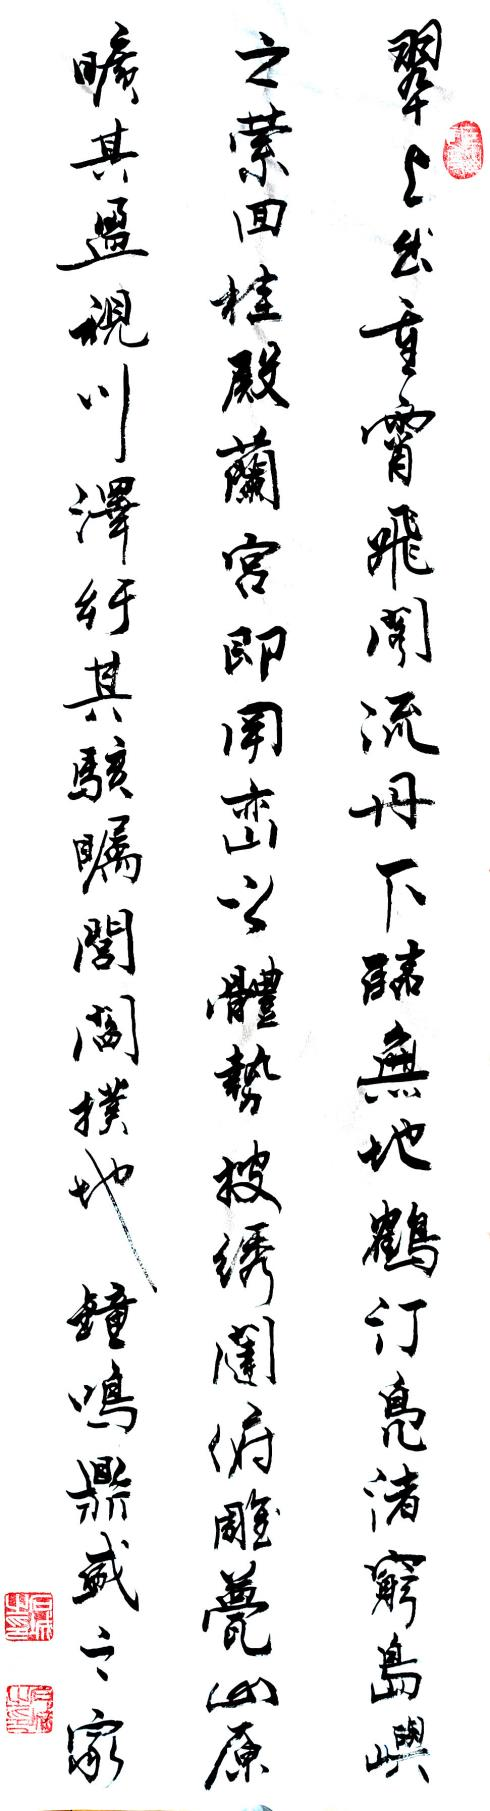 翠上出重霄飛閣流丹下臨無地鶴汀鳧渚窮島嶼
之縈回桂殿蘭宮即岡巒之體勢披綉闥俯雕甍山原
曠其盈視川澤紆其駭矚閭閻撲地鐘鳴鼎之家